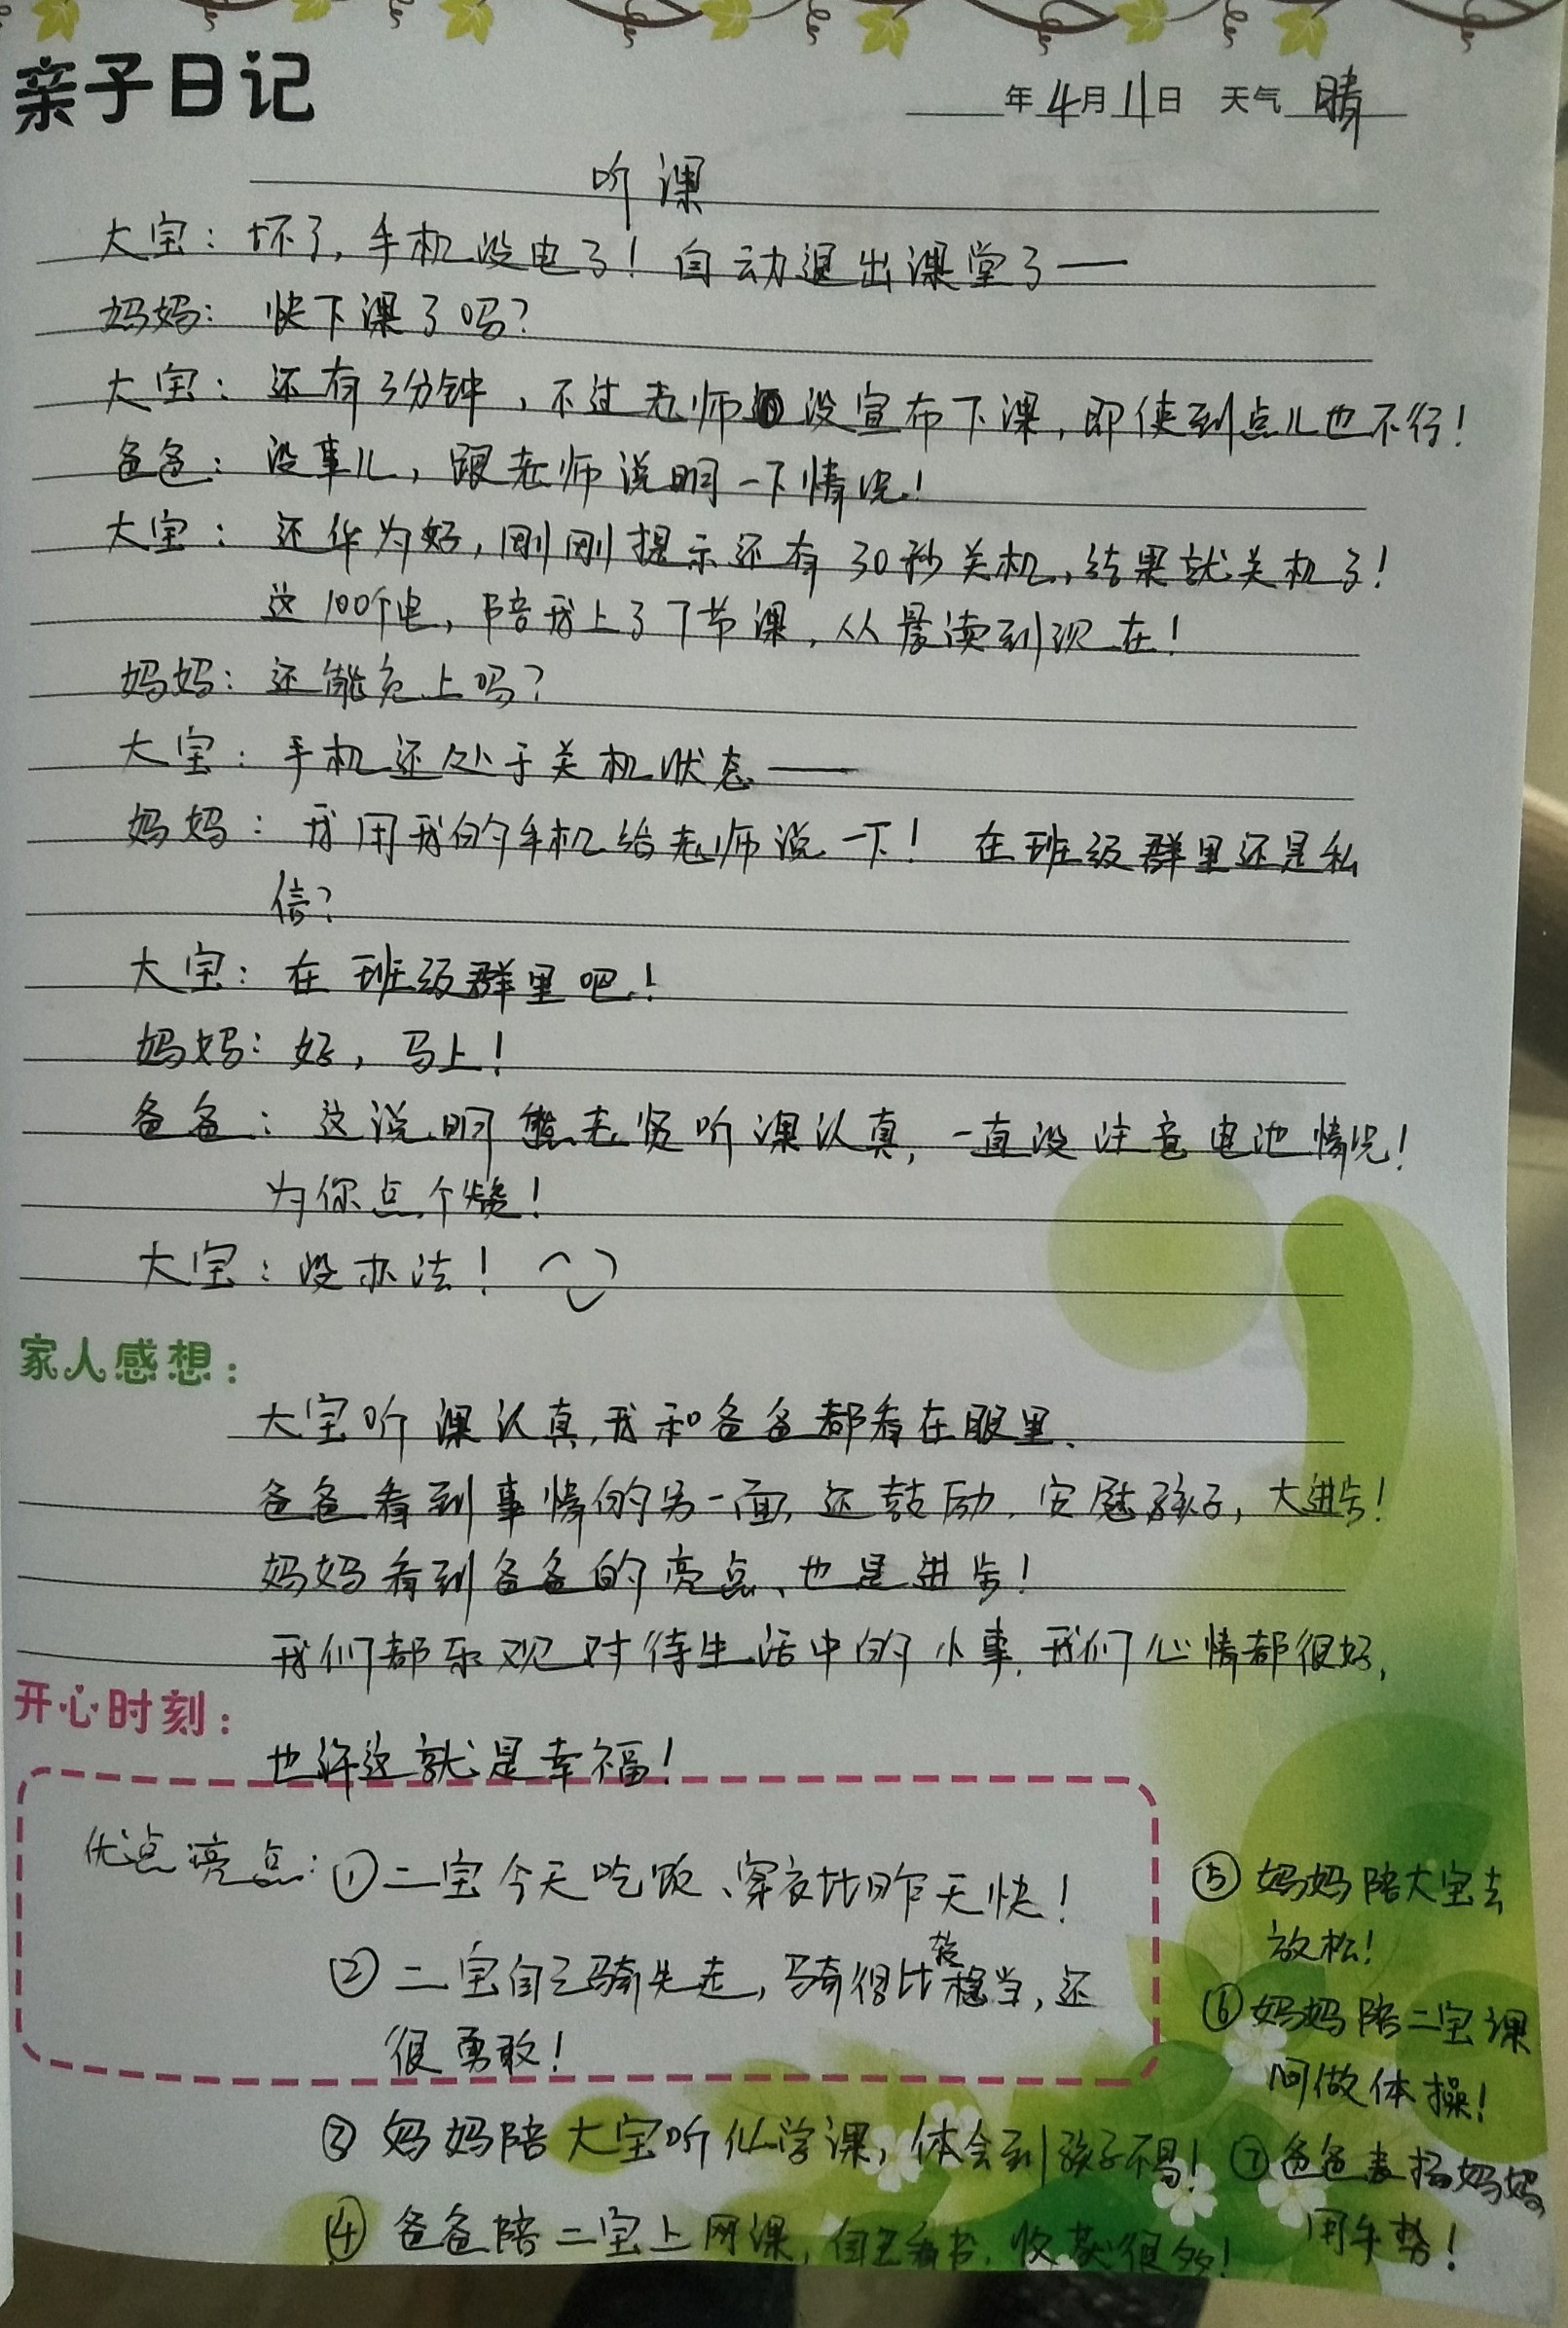 亲子日记
年4月11日 天气 晴
听课
大宝：坏了，手机没电了！自动退出课堂了——
妈妈：快下课了吗？
大宝：还有3分钟，不过老师没宣布下课，即使到点儿也不行！
爸爸：没事儿，跟老师说明一下情况！
大宝：还华为好，刚刚提示还有30秒关机，结果就关机了！
这100个电，陪我上了7节课，从晨读到现在！
妈妈：还能充上吗？
大宝：手机还处于关机状态——
妈妈：我用我的手机给老师说一下！在班级群里还是私
信？
大宝：在班级群里吧！
妈妈：好，马上！
爸爸：这说明熊老贤听课认真，一直没注意电池情况！
为你点个赞！
大宝：没办法！
家人感想：
大宝听课认真，我和爸爸都看在眼里、
爸爸看到事情的另一面，还鼓励、安慰孩子，大进步！
妈妈看到爸爸的亮点、也是进步！
我们都乐观对待生活中的小事，我们心情都很好，
开心时刻：
也许这就是幸福！
优点亮点：①二宝今天吃饭、穿衣比昨天快！
②二宝自己骑先走，骑得比较稳当，还
很勇敢！
③妈妈陪大宝听化学课，体会到孩子不易！
④爸爸陪二宝上网课，自己看书，收获很多！
⑤妈妈陪大宝去
放松！
⑥妈妈陪二宝课
间做体操！
⑦爸爸表扬妈妈
用手势！